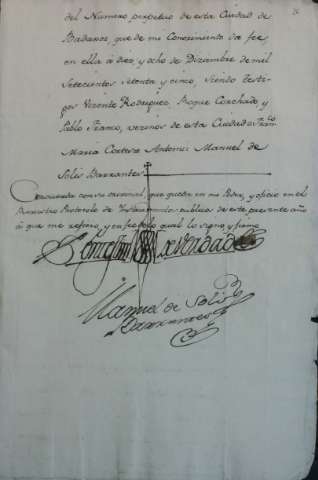 del Numero perpetuo de esta Ciudad de
Badaxoz, que de mi Conocimiento doi fee
en ella á diez, y ocho de Diziembre de mil
Setecientos Setenta y cinco, siendo testi-
gos Vizente Rodriguez, Roque Corchado y
Pablo Franco, vezinos de esta Ciudad =
Maria Cortes = Antemi: Manuel de
Solis Barrantes
Concuerda con su original, que queda en mi Poder, y oficio en el
Protocolo de Instrumentos publicos de este presente año
á que me refiero, y en fee de lo qual lo signo y firmo
En testim de verdad
Manuel de Solis
Barrantes